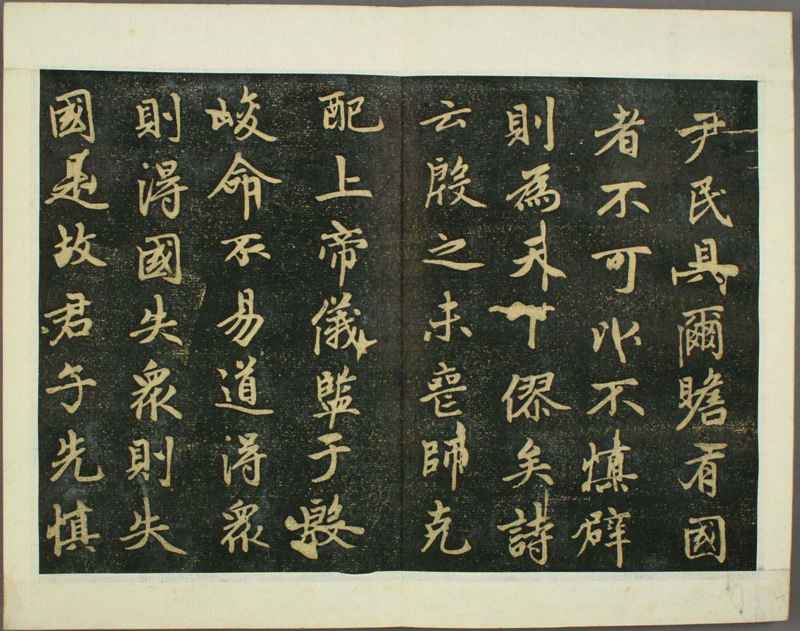 尹民具爾瞻有國
者不可以不慎辟
則為天下僇矣詩
云殷之未喪師克
配上帝儀監于殷
峻命不易道得眾
則得國失眾則失
國是故君子先慎